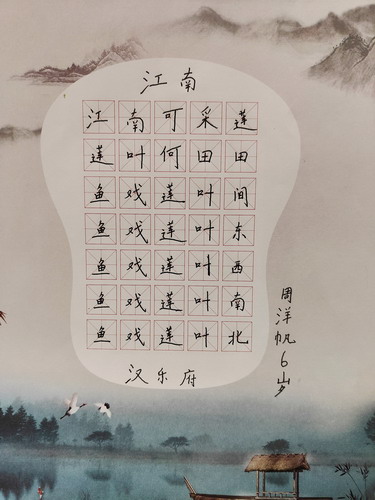 江南
江南可采莲
莲叶何田田
鱼戏莲叶间
鱼戏莲叶东
鱼戏莲叶西
鱼戏莲叶南
鱼戏莲叶北
汉乐府
周洋帆6岁